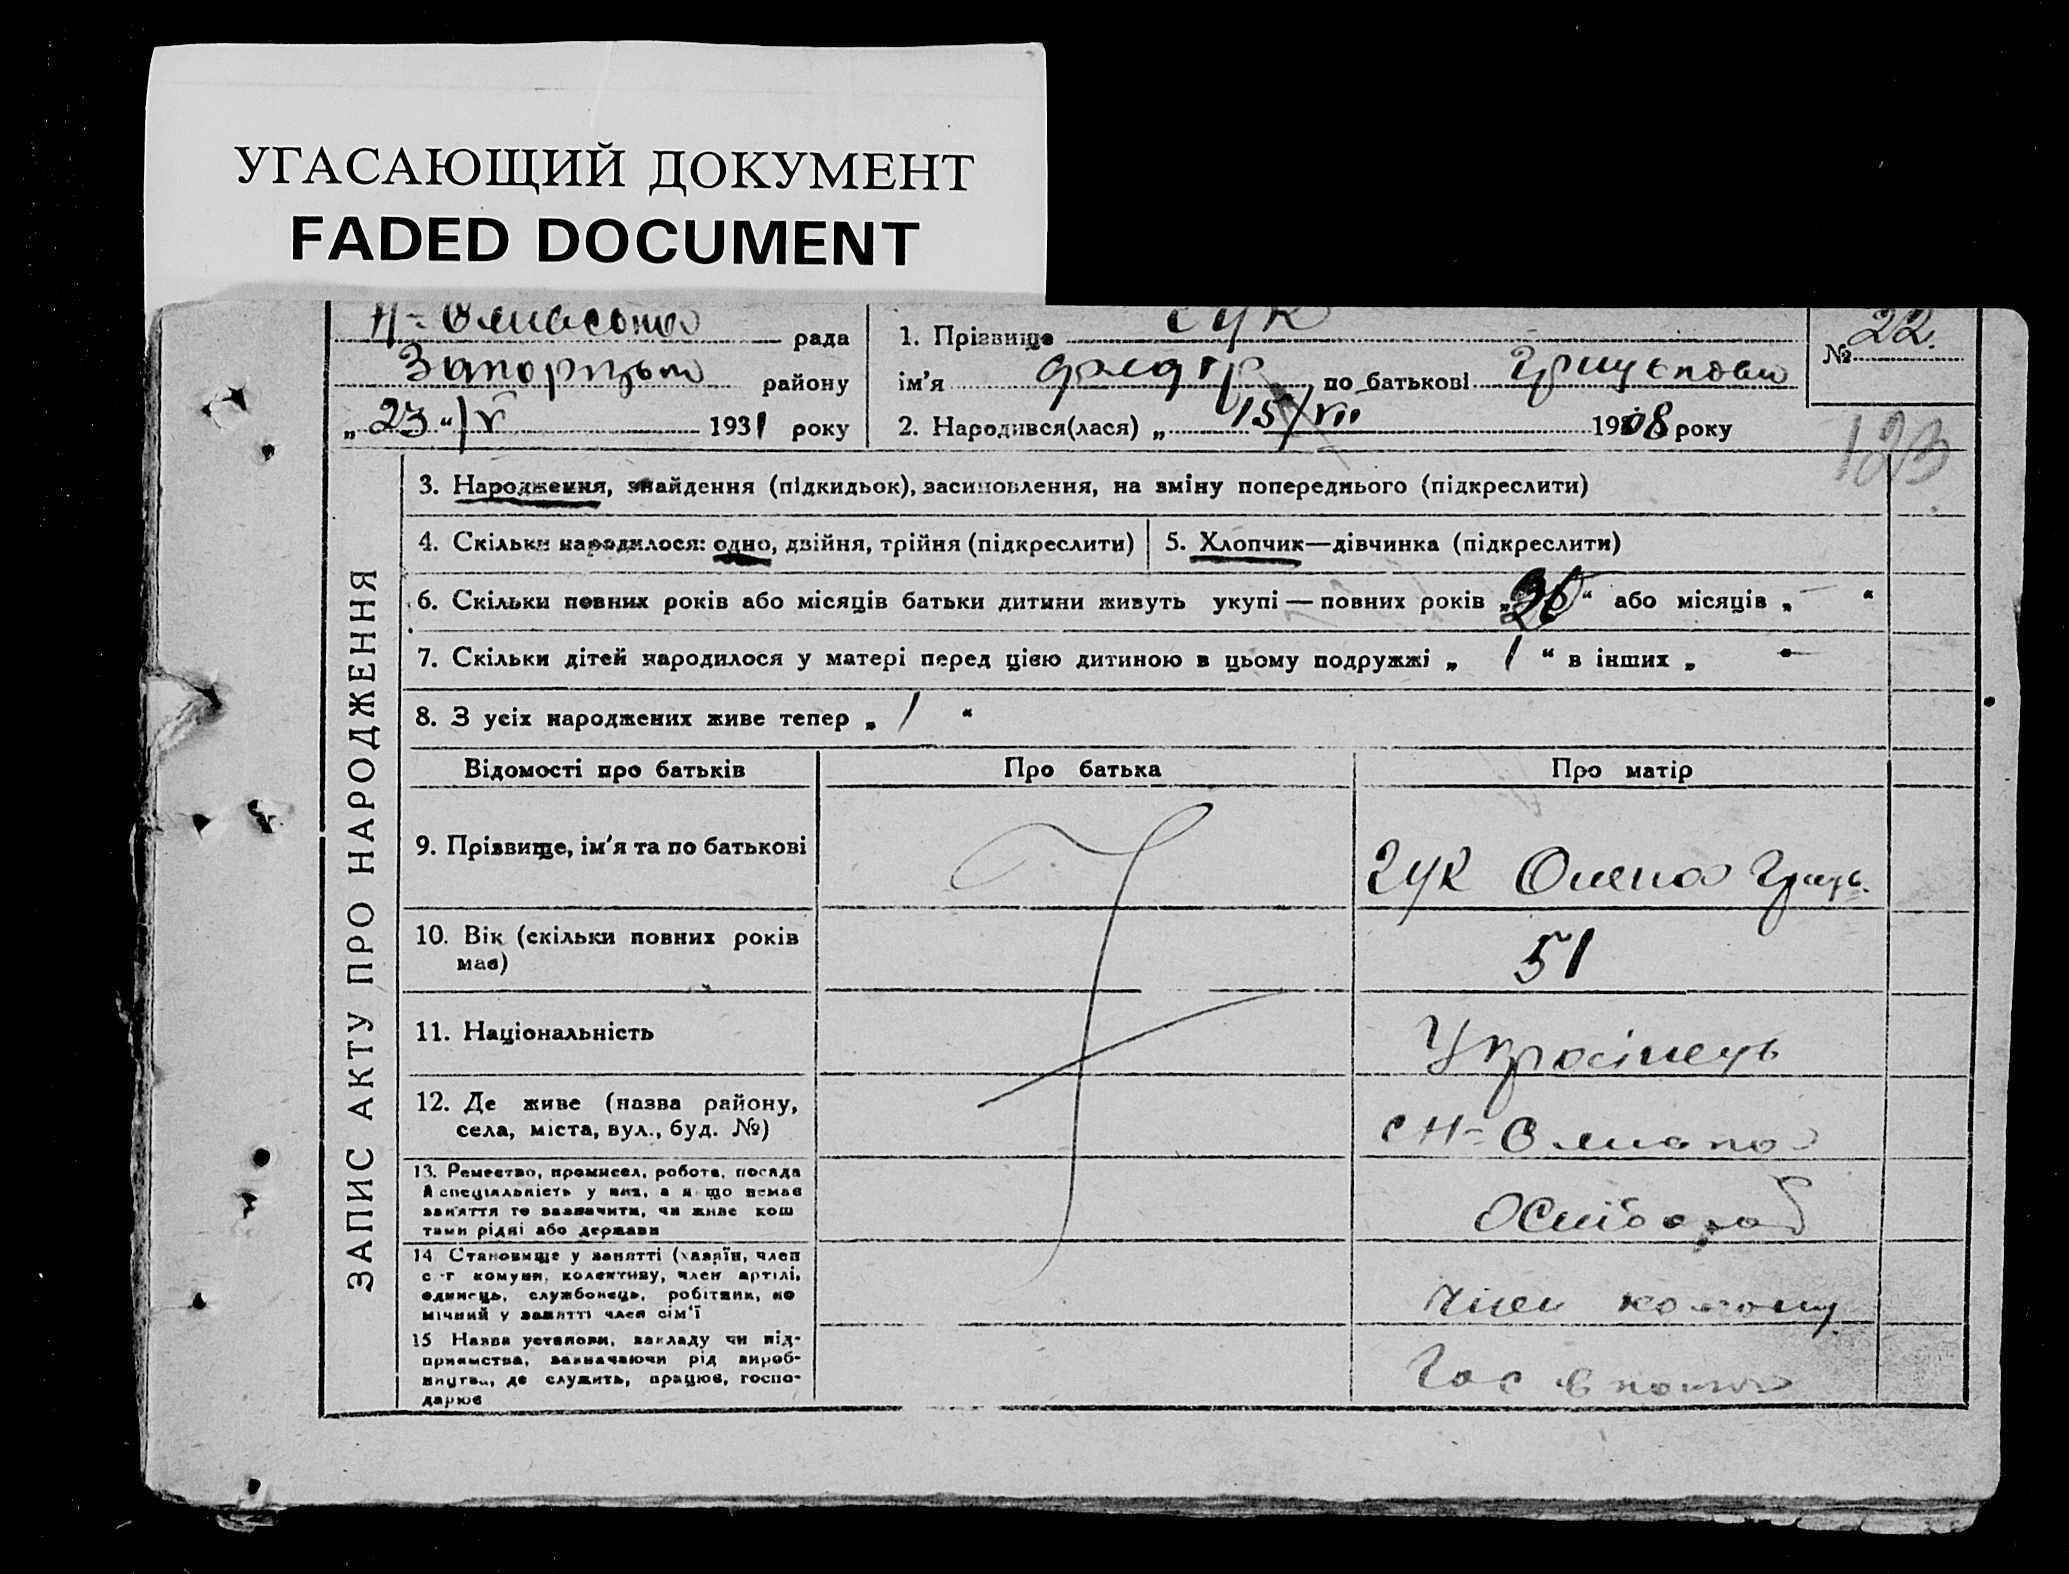 УГАСАЮЩИЙ ДОКУМЕНТ
FADED DOCUMENT
рада
району
„ 23 “ / V 1931 року
1. Прізвище Гук
ім’я по батькові
2. Народився(лася) „ 15/VII 1908 року
№ 22.
123
ЗАПИС АКТУ ПРО НАРОДЖЕННЯ
3. Народження, знайдення (підкидьок), засиновлення, на зміну попереднього (підкреслити)
4. Скільки народилося: одно, двійня, трійня (підкреслити)
5. Хлопчик—дівчинка (підкреслити)
6. Скільки повних років або місяців батьки дитини живуть укупі — повних років „ “ або місяців „ — “
7. Скільки дітей народилося у матері перед цією дитиною в цьому подружжі „ 1 “ в інших „ —
8. З усіх народжених живе тепер „ 1 “
Відомості про батьків
Про батька
Про матір
9. Прізвище, ім’я та по батькові
Гук Олена Гриць.
10. Вік (скільки повних років
має)
51
11. Національність
Українець
12. Де живе (назва району,
села, міста, вул., буд. №)
13. Ремество, промисел, робота, посада
й спеціяльність у них, а якщо немає
заняття то зазначити, чи живе кош
тами рідні або держави
14. Становище у занятті (хазяїн, член
с-г комуни, колективу, член артілі,
одинець, службовець, робітник, по
мічний у занятті член сім’ї
член
15 Назва установи, закладу чи під-
приємства, зазначаючи рід вироб-
ництва, де служить, працює, госпо-
дарює